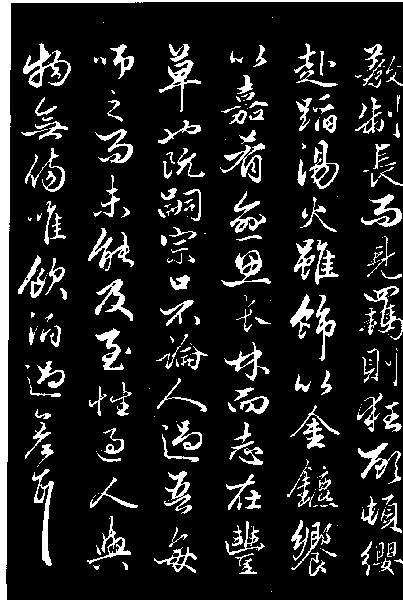 教制長而見羈則狂顧頓纓
赴蹈湯火雖飾以金鑣饗
以嘉肴愈思長林而志在豐
草也阮嗣宗口不論人過吾每
師之而未能及至性過人與
物無傷唯飲酒過差耳